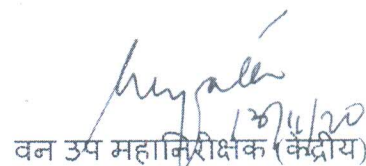 13/11/20
वन उप महानिरीक्षक (केंद्रीय)